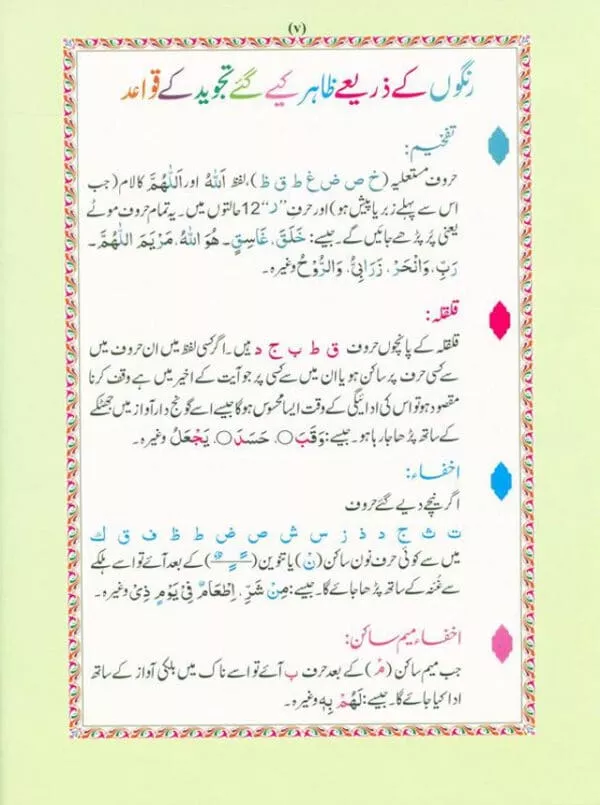 (v)
رنگوں کے ذریعے ظاہر کیے گئے تجوید کے قواعد
تفخیم:
حروف مستعلیہ (خ ص ض غ ط ق ظ)، لفظ اَللهُ اور اَللّٰهُمَّ کا لام (جب
اس سے پہلے زبر یا پیش ہو) اور حرف ”ر“ 12 حالتوں میں۔ یہ تمام حروف موٹے
یعنی پُر پڑھے جائیں گے۔ جیسے: خَلَقَ، غَاسِقٍ۔ هُوَ اللهُ، مَرْيَمَ اللّٰهُمَّ۔
رَبِّ، وَانْحَرْ، زَرَابِيُّ، وَالرُّوْحُ وغیرہ۔
قلقلہ:
قلقلہ کے پانچوں حروف ق ط ب ج د ہیں۔ اگر کسی لفظ میں ان حروف میں
سے کسی حرف پر سکون ہو یا ان میں سے کسی پر جو آیت کے اخیر میں ہے وقف کرنا
مقصود ہو تو اس کی ادائیگی کے وقت ایسا محسوس ہوگا جیسے اسے گونج دار آواز میں جھٹکے
کے ساتھ پڑھا جا رہا ہو۔ جیسے: وَقَبَ○، حَسَدَ○، يَجْعَلُ وغیرہ۔
اخفاء:
اگر نیچے دیے گئے حروف
ت ث ج د ذ ز س ش ص ض ط ظ ف ق ك
میں سے کوئی حرف نون ساکن (نْ) یا تنوین (ـًـٍـٌ) کے بعد آئے تو اسے ہلکے
سے غُنہ کے ساتھ پڑھا جائے گا۔ جیسے: مِنْ شَرِّ، اِطْعَامٌ فِيْ يَوْمٍ ذِيْ وغیرہ۔
اخفاء میم ساکن:
جب میم ساکن (مْ) کے بعد حرف ب آئے تو اسے ناک میں ہلکی آواز کے ساتھ
ادا کیا جائے گا۔ جیسے: لَهُمْ بِهٖ وغیرہ۔